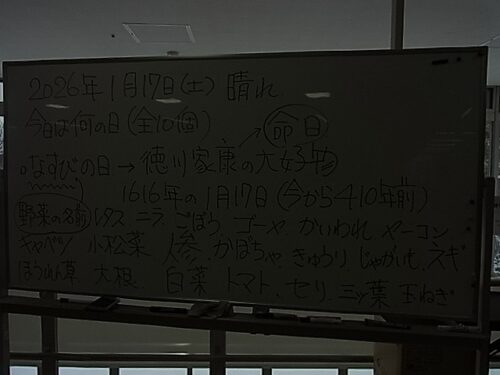 2026年1月17日(土) 晴れ
今日は何の日(全10個) 命日
◦なすびの日→徳川家康の大好物
1616年の1月17日(今から410年前)
野菜の名前 レタス ニラ ごぼう ゴーヤ かいわれ ヤーコン
キャベツ 小松菜 人参 かぼちゃ きゅうり じゃがいも ネギ
ほうれん草 大根 白菜 トマト セリ 三ッ葉 玉ねぎ